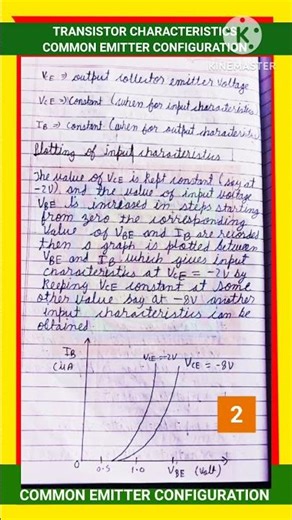 TRANSISTOR CHARACTERISTICS
COMMON EMITTER CONFIGURATION
KINEMASTER
VCE ⇒ output collector emitter voltage
VCE ⇒ Constant (when for input characteristics)
IB ⇒ constant (when for output characteristics
Plotting of input characteristics
The value of VCE is kept constant (say at
-2V) and the value of input voltage
VBE is increased in steps starting
from zero the corresponding
value of VBE and IB are recorded
then a graph is plotted between
VBE and IB which gives input
characteristics at VCE = -2V by
keeping VCE constant at some
other value say at -8V another
input characteristics can be
obtained.
IB
(μA
VCE=-2V
VCE = -8V
2
0
0.5
1.0
VBE (Volt)
COMMON EMITTER CONFIGURATION